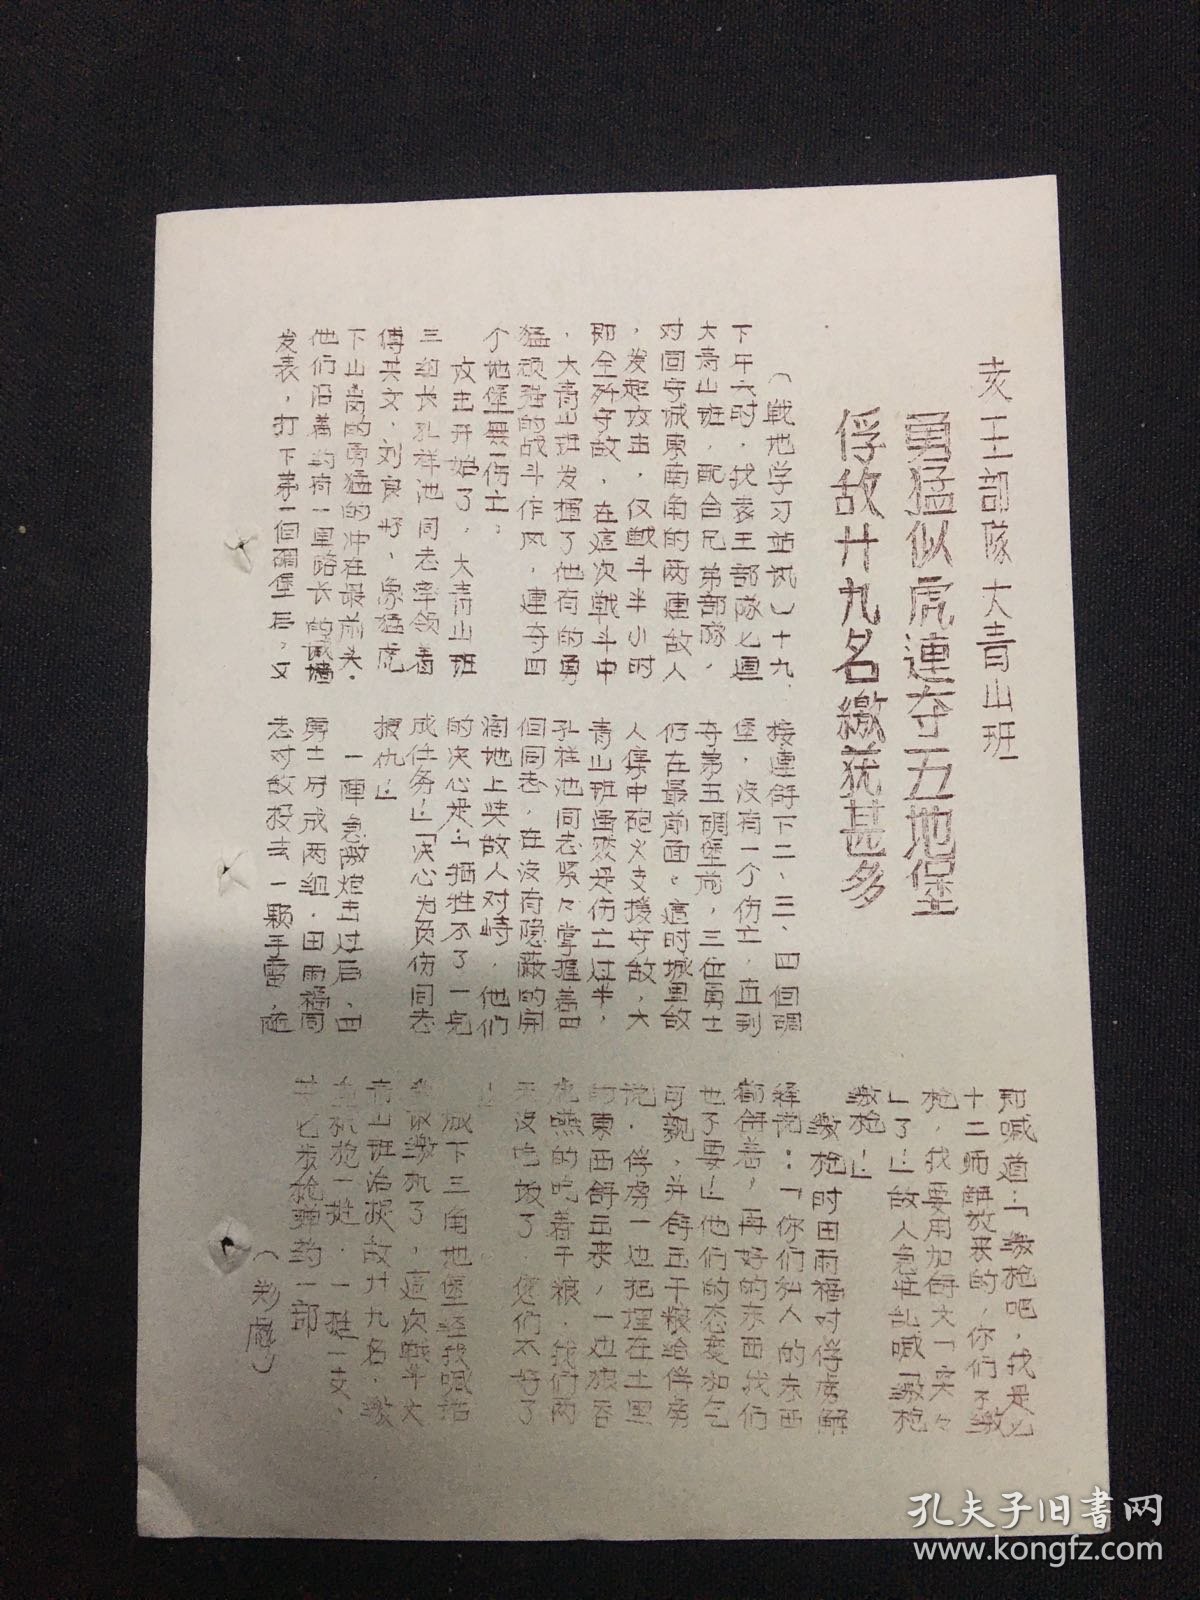 部隊大青山班
勇猛似虎連夺五地堡
俘敌廿九名繳获甚多
（戰地学习站讯）十九
下午六时，我袁王部隊七連
大青山班，配合兄弟部隊，
对固守城東南角的两連敌人
，发起攻击，仅戰斗半小时
即全歼守敌，在這次戰斗中
，大青山班发揮了他有的勇
猛頑强的战斗作风，連夺四
个地堡無一伤亡。
攻击开始了，大青山班
三組长孔祥池同志率领着
傅其文，刘良好，象猛虎
下山崗的勇猛的冲在最前头。
他们沿着約有一里路长的
发表，打下第一個碉堡后，又
接連解下二、三、四個碉
堡，没有一个伤亡，直到
夺第五碉堡前，三位勇士
仍在最前面。這时城里敌
人集中砲火支援守敌，大
青山班虽然是伤亡过半，
孔祥池同志紧々掌握着田
個同志，在没有隐蔽的開
阔地上與敌人对峙，他们
的决心是：「犧牲不了一定
成任务」「决心为负伤同志
報仇」
一陣急敏炮击过后，田
勇士分成两组，田雨福同
志对敌投去一颗手雷，随
即喊道：「繳枪吧，我是七
十二师解放来的，你们不繳
枪，我要用加餅大「夹々
」了」敌人急忙乱喊「繳枪
繳枪」
繳枪时田雨福对俘虏解
释说：「你们私人的东西
都餅着，再好的东西我们
也不要」他们的态度和气
可親，并解下干粮给俘虏
吃，俘虏一边把埋在土里
的東西解出来，一边狼吞
虎嚥的吃着干粮，我们两
天没吃饭了，
」
成下三角地堡經我喊話
繳机了，這次戰斗大
青山班治获敌廿九名，繳
重机枪一挺，一挺一支、
廿七步枪弹药一部